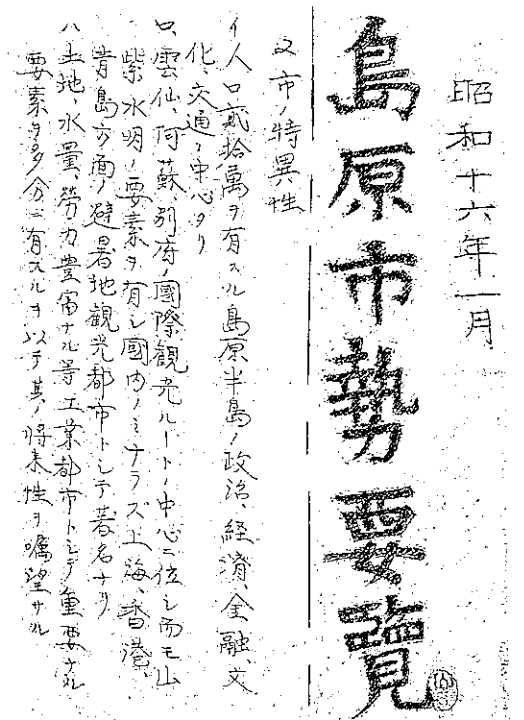 昭和十六年一月
島原市勢要覽
又市ノ特異性
イ人口貳拾萬ヲ有スル島原半島ノ政治、経濟、金融、文
化、交通ノ中心タリ
ロ、雲仙、阿蘇、別府ノ國際観光ルートノ中心ニ位シ而モ山
紫水明ノ要素ヲ有シ國内ノミナラズ上海、香港、
青島方面ノ避暑地観光都市トシテ著名ナリ
ハ土地、水量、勞力豊富ナル等工業都市トシテ重要ナル
要素ヲ多分ニ有スルヲ以テ其ノ将来性ヲ嘱望サル